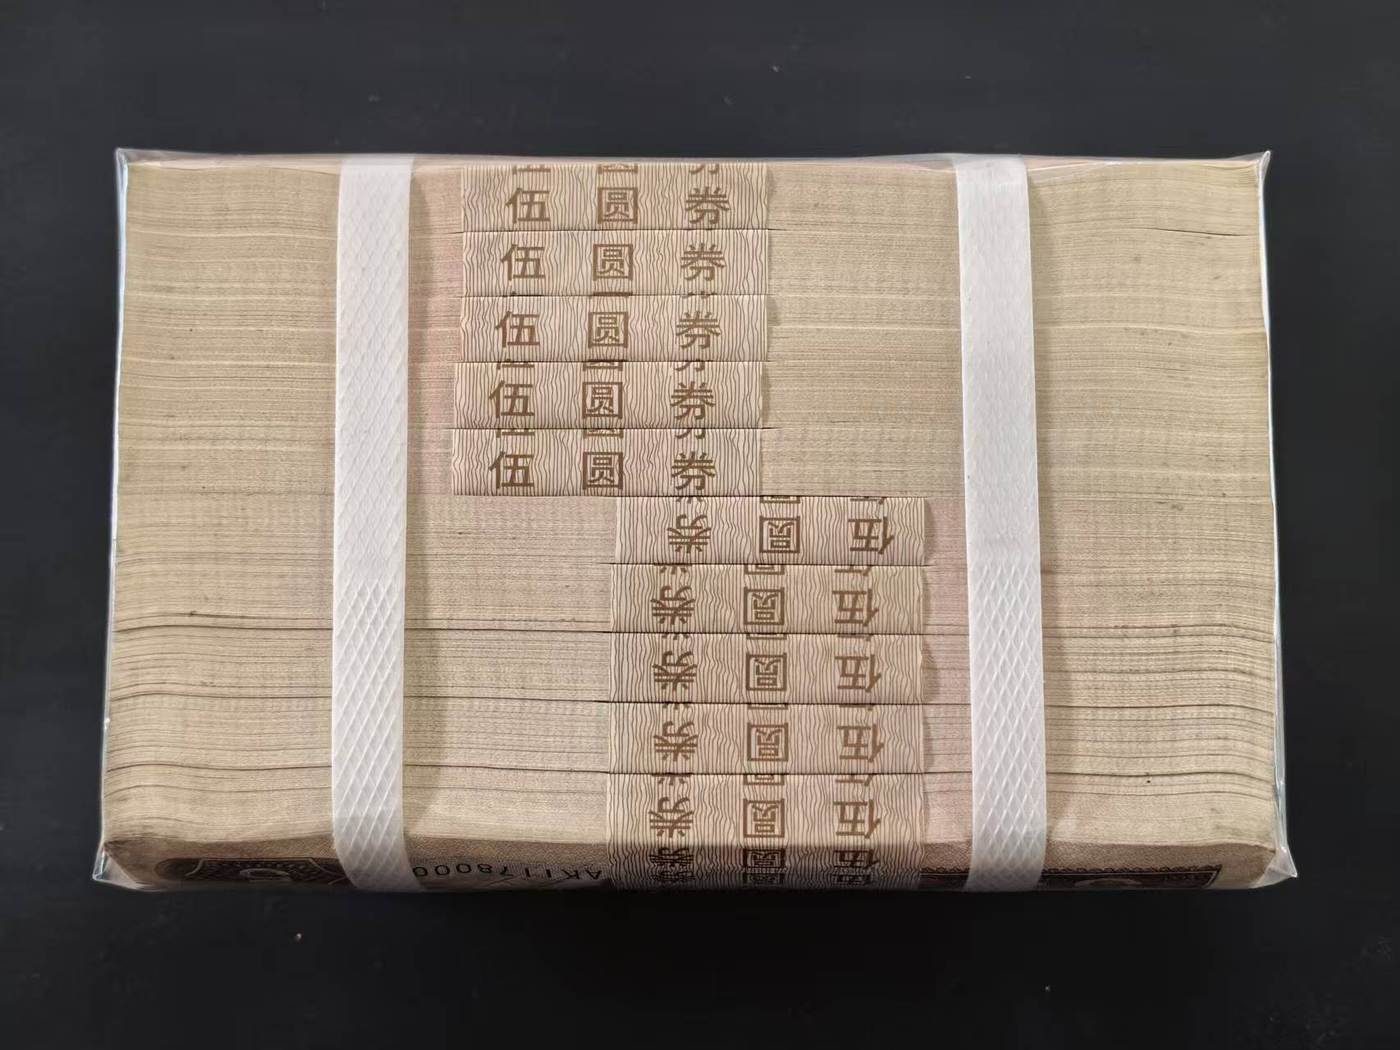 伍 圆 券
伍 圆 券
伍 圆 券
伍 圆 券
伍 圆 券
伍 圆 券
伍 圆 券
伍 圆 券
伍 圆 券
伍 圆 券
伍 圆 券
AK1178000